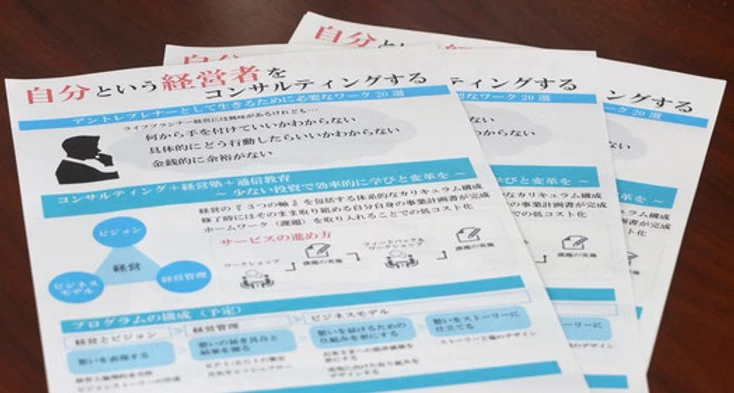 自分という経営者を
コンサルティングする
アントレプレナーとして生きるために必要なワーク20選
ライフプランナー経営には興味があるけれども…
何から手を付けていいかわからない
具体的にどう行動したらいいかわからない
金銭的に余裕がない
コンサルティング+経営塾+通信教育
~ 少ない投資で効率的に学びと変革を ~
経営の『3つの軸』を包括する体系的なカリキュラム構成
修了時にはそのまま取り組める自分自身の事業計画書が完成
ホームワーク(課題)を取り入れることでの低コスト化
ビジョン
経営
ビジネス
モデル
経営管理
サービスの進め方
ワークショップ
課題の実施
フィードバック&
ワークショップ
課題の実施
プログラムの構成(予定)
経営とビジョン
経営管理
ビジネスモデル
想いを表現する
想いを届けるための
仕組みを形にする
想いをストーリーに
仕立てる
ストーリーと場のデザイン
自分と
ティングする
なワーク20選
学びと変革を ~
なカリキュラム構成
の事業計画書が完成
の低コスト化
課題の実施